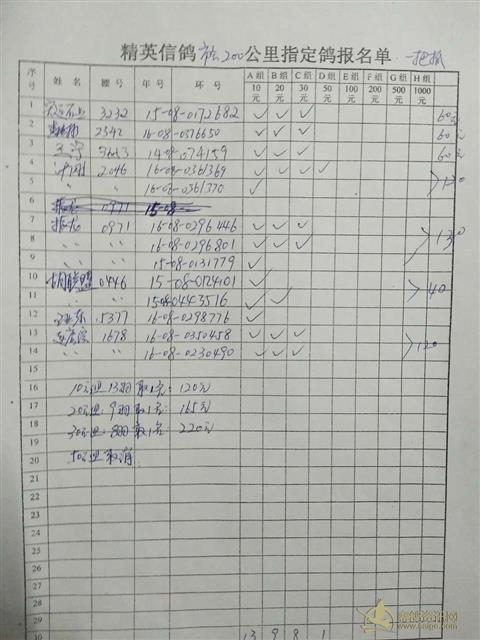 精英信鸽 200公里指定鸽报名单 一把抓
序号 姓名 棚号 年号 环号 A组10元 B组20元 C组30元 D组50元 E组100元 F组200元 G组500元 H组1000元
1 3232 15-08-0172682 ✓ ✓ ✓ 60元
2 2342 16-08-0376650 ✓ ✓ ✓ 60元
3 王宁 14-08-074159 ✓ ✓ ✓ 60元
4 2046 16-08-0361369 ✓ ✓ ✓ ✓
5 〃 〃 16-08-0361370 ✓
6 0971 15-08-
7 0971 16-08-0296446 ✓ ✓ ✓
8 〃 〃 16-08-0296801 ✓ ✓ ✓
9 〃 〃 15-08-0131779 ✓
10 0446 15-08-0124101 ✓
11 〃 〃 15-08-0443516 ✓ ✓ 40
12 5377 16-08-0298776 ✓
13 1678 16-08-0350458 ✓ ✓ ✓
14 〃 〃 16-08-0230490 ✓ ✓ ✓ 120
15
16 10元组 13羽取1名: 120元
17 20元组: 9羽取1名: 165元
18 30元组: 8羽取1名: 220元
19
20 50元组取消
21
22
23
24
25
26
27
28
29
13 9 8 1